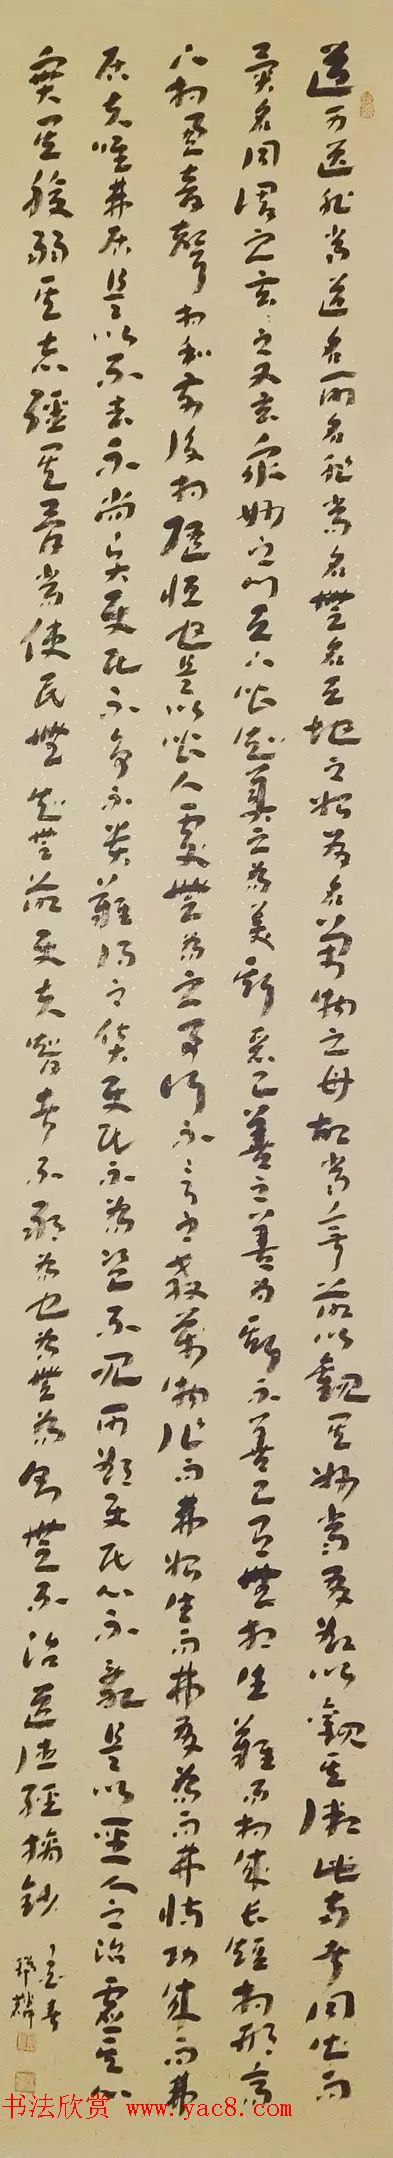 道可道非常道名可名非常名無名天地之始有名萬物之母故常無欲以觀其妙常有欲以觀其徼此兩者同出而
異名同謂之玄之又玄衆妙之門天下皆知美之為美斯惡已善之善為斯不善已有無相生難易相成長短相形高
下相盈音聲相和前後相隨恒也是以聖人處無為之事行不言之教萬物作而弗始生而弗有為而弗恃功成而弗
居夫唯弗居是以不去不尚賢使民不爭不貴難得之貨使民不為盜不見可欲使民心不亂是以聖人之治虛其心
實其腹弱其志強其骨常使民無知無欲使夫智者不敢為也為無為則無不治道德經摘鈔
书法欣赏 www.yac8.com